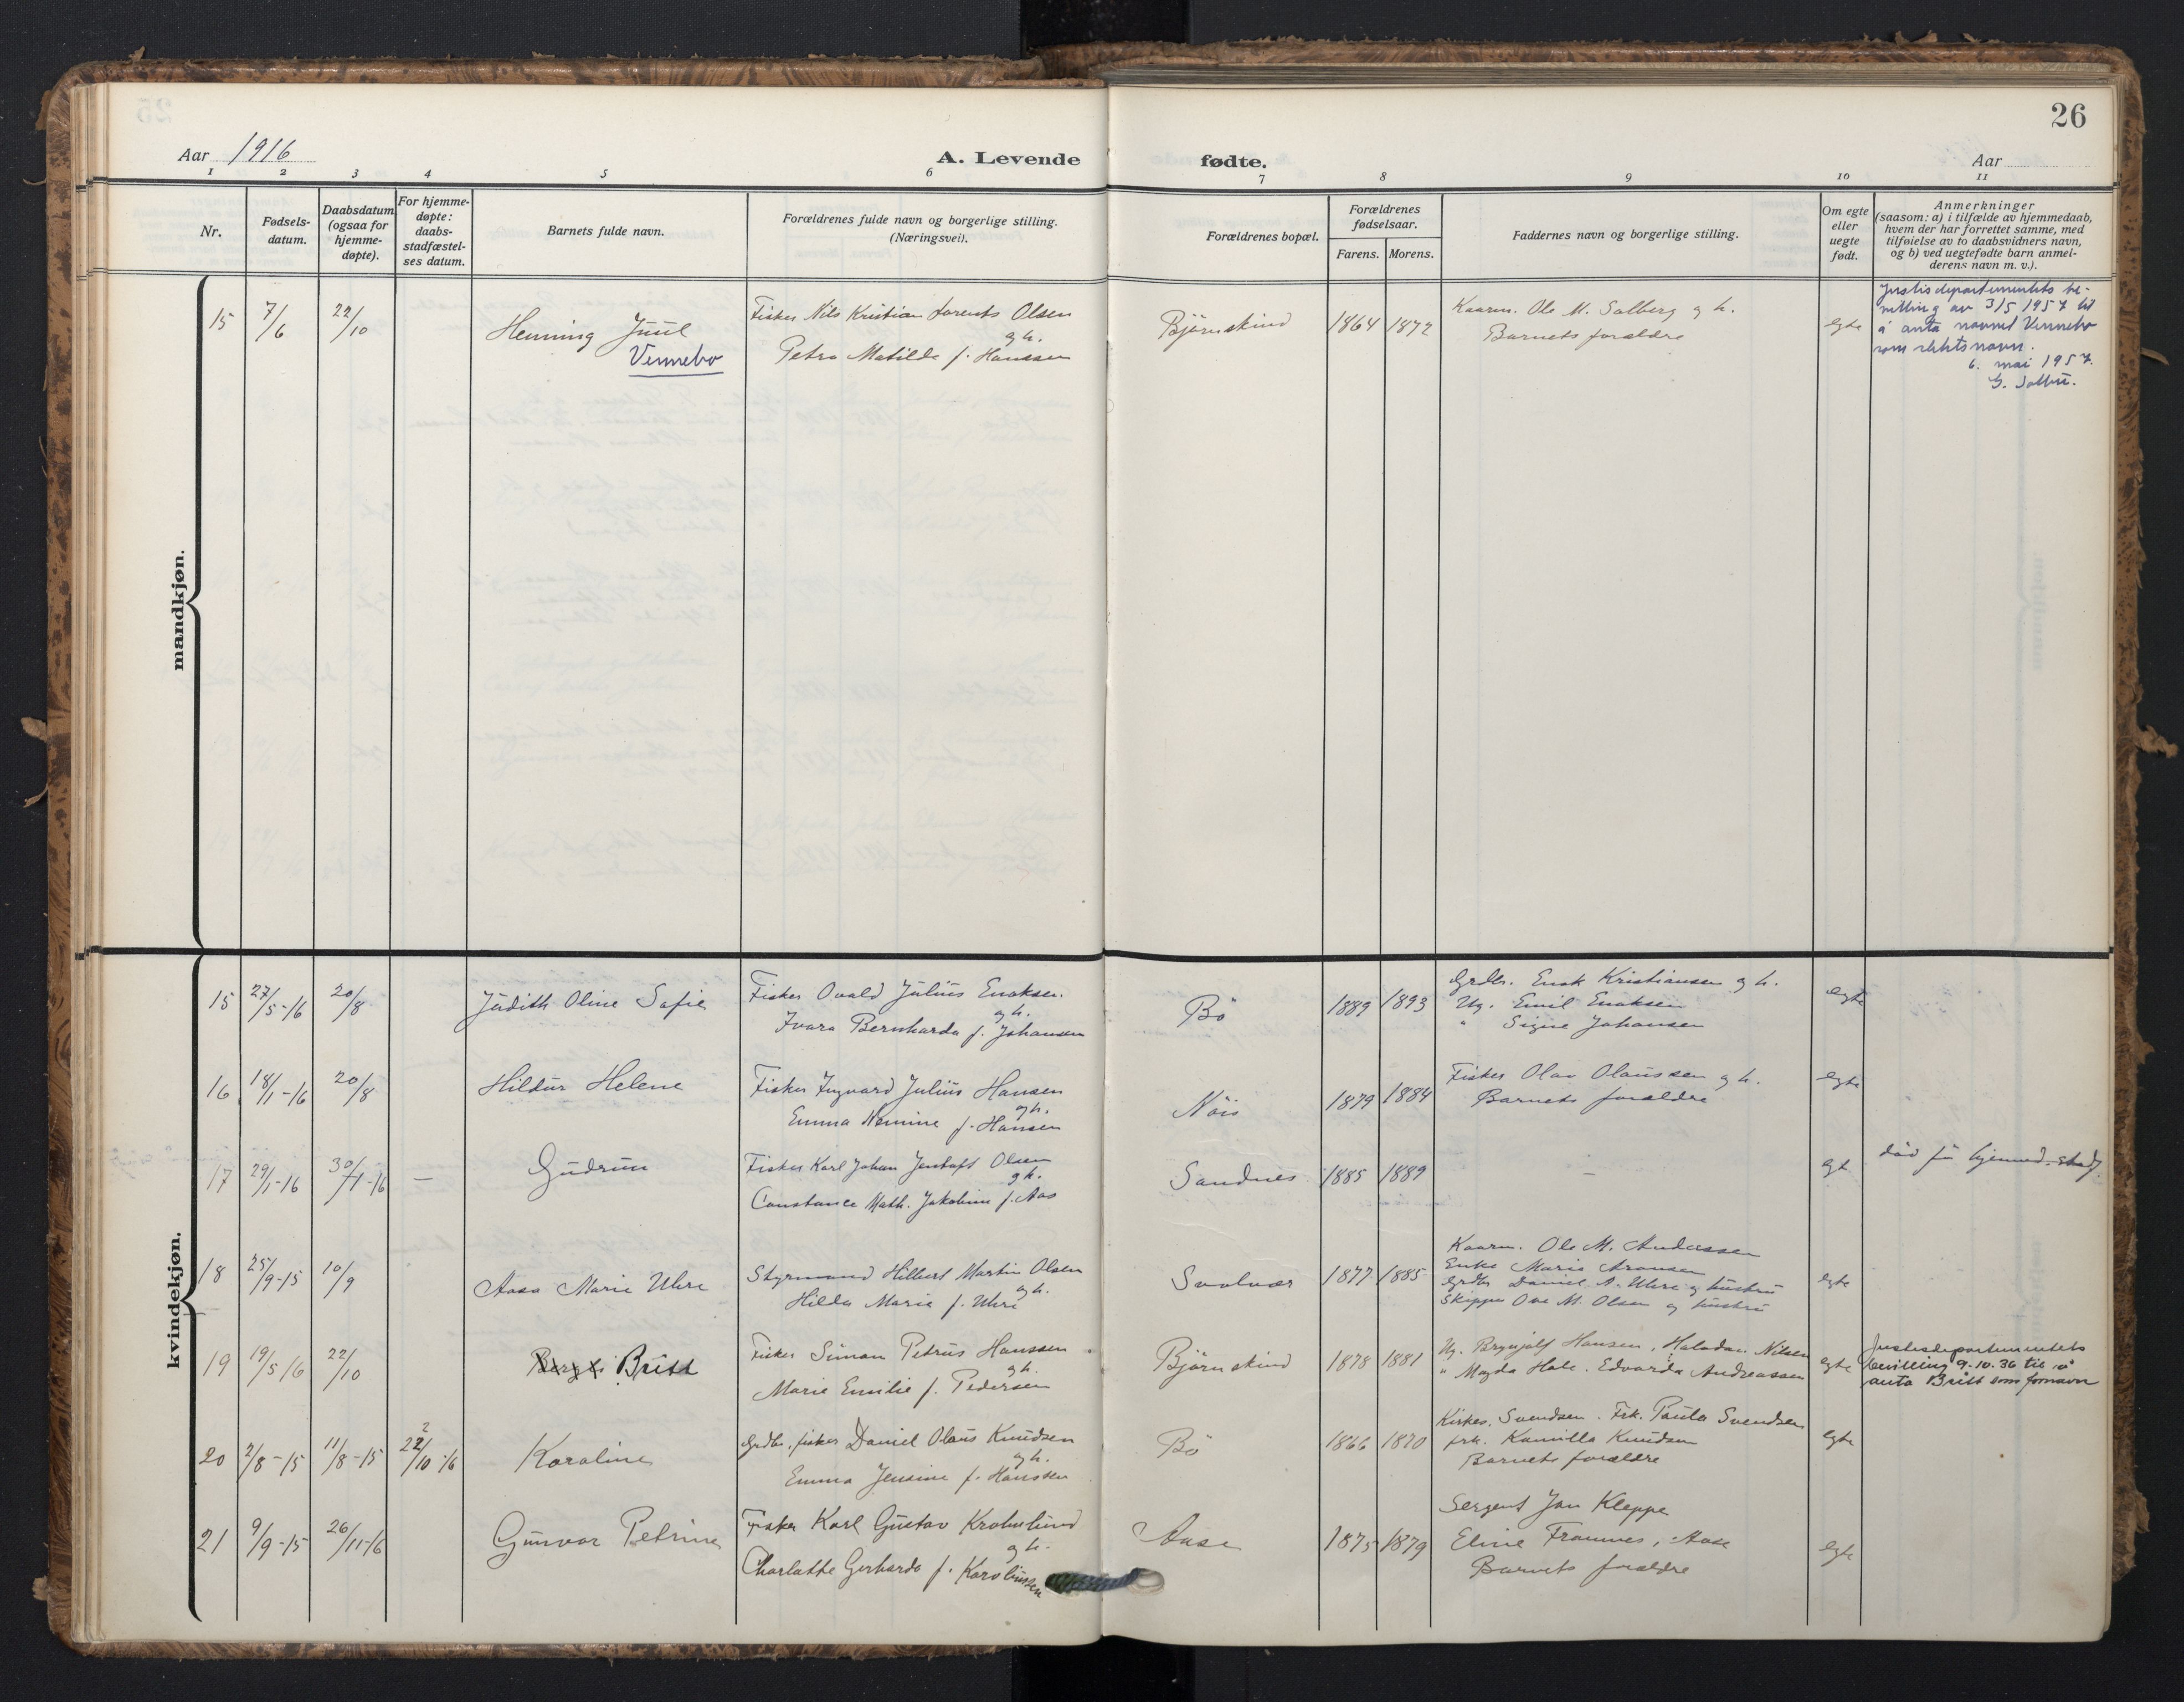 26
Aar 1916
A. Levende
fødte.
Aar
1 2 3 4 5 6 7 8 9 10 11
Nr.
Fødsels-
datum.
Daabsdatum
(ogsaa for
hjemme-
døpte).
For hjemme-
døpte:
daabs-
stadfæstel-
ses datum.
Barnets fulde navn.
Forældrenes fulde navn og borgerlige stilling.
(Næringsvei).
Forældrenes bopæl.
Forældrenes
fødselsaar.
Farens. Morens.
Faddernes navn og borgerlige stilling.
Om egte
eller
uegte
født.
Anmerkninger
(saasom: a) i tilfælde av hjemmedaab,
hvem der har forrettet samme, med
tilføielse av to daabsvidners navn,
og b) ved uegtefødte barn anmel-
derens navn m. v.).
mandkjøn.
15 7/6 22/10
Henning Juul
Vennebo
Fisker Nils Kristian Lorents Olsen
g h.
Petra Matilde f. Hanssen
Björnskind 1864 1872
Kaarm. Ole M. Solberg g h.
Barnets forældre
egte
Justisdepartementets be-
villing av 3/5 1957 til
å anta navnet Vennebo
som slektsnavn.
6. mai 1957.
kvindekjøn.
15 27/5-16 20/8
Judith Oline Sofie
Fisker Ovald Julius Enoksen
g h.
Ivara Bernharda f. Johansen
Bö 1889 1893
Grdbr. Enok Kristiansen g h.
Ug. Emil Enoksen
" Signe Johansen
egte
16 18/1-16 20/8
Hildur Helene
Fisker Ingvard Julius Hansen
g h.
Emma Nemine f. Hansen
Nöis 1879 1884
Fisker Olav Olaussen g h.
Barnets forældre
egte
17 29/1-16 30/1-16 —
Gudrun
Fisker Karl Johan Jentoft Olsen
g h.
Constance Math. Jakobine f. Aas
Sandnes 1885 1889
—
egt.
död før hjemmed. stadf.
18 25/9-15 10/9
Aasa Marie Uhre
Styrmand Hilbert Martin Olsen
g h.
Hilda Marie f. Uhre
Svolvær 1877 1885
Kaarm. Ole M. Andassen
Enke Marie Aronsen
Grdbr Daniel A. Uhre g hustru
Skipper Ove M. Olsen g hustru
egte
19 19/5 16 22/10
Britt
Fisker Simon Petrus Hanssen
g h.
Marie Emilie f. Pedersen
Björnskind 1878 1881
Ug. Brynjulf Hansen, Halvdan Nilsen
" Magda Hole. Edvarda Andreassen
egte
Justisdepartementets
bevilling 9.10.36 til å
anta Britt som fornavn
20 2/8-15 11/8-15 22/10-16
Karoline
Grdbr. fisker Daniel Olaus Knudsen
g h.
Emma Jensine f. Hanssen
Bö 1866 1870
Kirkes. Svendsen. Frk. Paula Svendsen
frk. Kamilla Knudsen
Barnets forældre
egte
21 9/9-15 26/11-16
Gunvor Petrine
Fisker Karl Gustav Krohnlund
g h.
Charlotte Gerharda f. Karoliussen
Aase 1875 1879
Sergent Jan Kleppe
Eline Framnes, Aase
Barnets forældre
egte